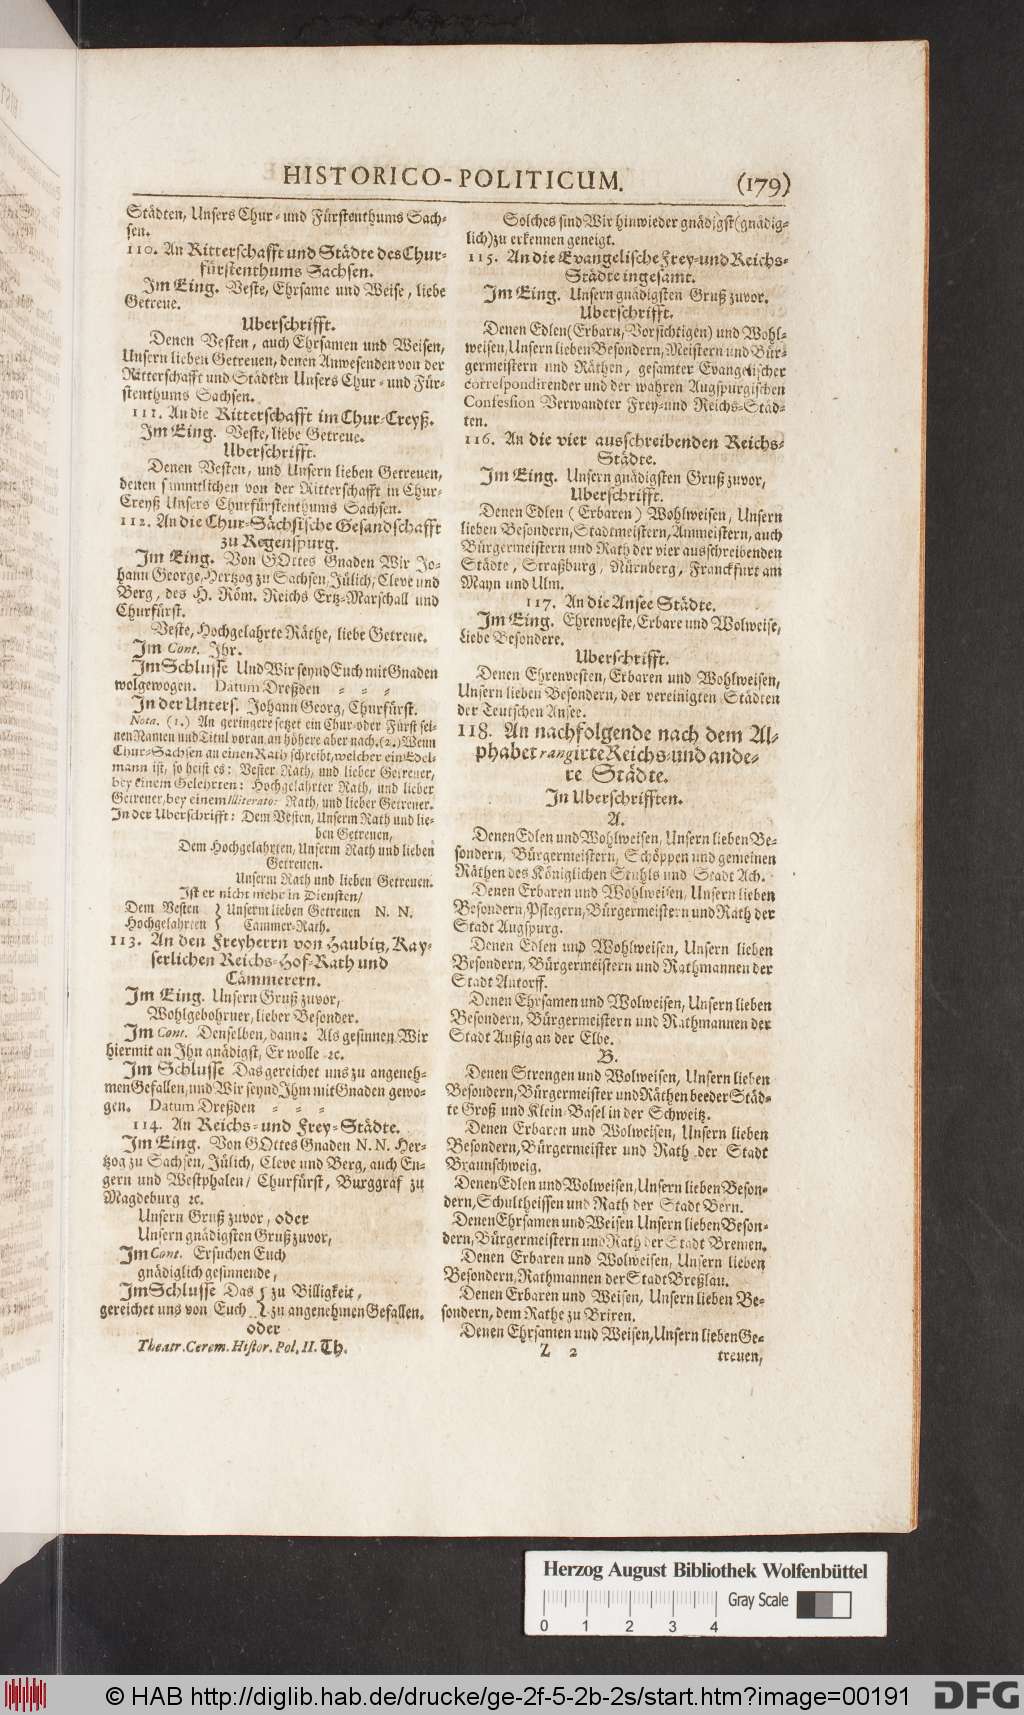 HISTORICO-POLITICUM. (179)
Städten, Unsers Chur- und Fürstenthums Sach-
sen.
110. An Ritterschafft und Städte des Chur-
fürstenthums Sachsen.
Im Eing. Veste, Ehrsame und Weise, liebe
Getreue.
Uberschrifft.
Denen Vesten, auch Ehrsamen und Weisen,
Unsern lieben Getreuen, denen Anwesenden von der
Ritterschafft und Städten Unsers Chur- und Für-
stenthums Sachsen.
111. An die Ritterschafft im Chur-Creyß.
Im Eing. Veste, liebe Getreue.
Uberschrifft.
Denen Vesten, und Unsern lieben Getreuen,
denen sämmtlichen von der Ritterschafft in Chur-
Creyß Unsers Churfürstenthums Sachsen.
112. An die Chur-Sächsische Gesandschafft
zu Regenspurg.
Im Eing. Von GOttes Gnaden Wir Jo-
hann George, Hertzog zu Sachsen, Jülich, Cleve und
Berg, des H. Röm. Reichs Ertz-Marschall und
Churfürst.
Veste, Hochgelahrte Räthe, liebe Getreue.
Im Cont. Ihr.
Im Schlusse Und Wir seynd Euch mit Gnaden
wolgewogen. Datum Dreßden - - -
In der Unters. Johann Georg, Churfürst.
Nota. (1.) An geringere setzet ein Chur- oder Fürst sei-
nen Namen und Titul voran, an höhere aber nach. (2.) Wenn
Chur-Sachsen an einen Rath schreibt, welcher ein Edel-
mann ist, so heist es: Vester Rath, und lieber Getreuer,
bey einem Gelehrten: Hochgelahrter Rath, und lieber
Getreuer, bey einem Illiterato: Rath, und lieber Getreuer.
In der Uberschrifft: Dem Vesten, Unserm Rath und lie-
ben Getreuen,
Dem Hochgelahrten, Unserm Rath und lieben
Getreuen.
Unserm Rath und lieben Getreuen.
Ist er nicht mehr in Diensten/
Dem Vesten } Unserm lieben Getreuen N. N.
Hochgelahrten } Cammer-Rath.
113. An den Freyherrn von Haubitz, Kay-
serlichen Reichs-Hof-Rath und
Cämmerern.
Im Eing. Unsern Gruß zuvor,
Wohlgebohrner, lieber Besonder.
Im Cont. Denselben, dann: Als gesinnen Wir
hiermit an Ihn gnädigst, Er wolle ꝛc.
Im Schlusse Das gereichet uns zu angeneh-
men Gefallen, und Wir seynd Ihm mit Gnaden gewo-
gen. Datum Dreßden - - -
114. An Reichs- und Frey-Städte.
Im Eing. Von GOttes Gnaden N. N. Her-
tzog zu Sachsen, Jülich, Cleve und Berg, auch En-
gern und Westphalen/ Churfürst, Burggraf zu
Magdeburg ꝛc.
Unsern Gruß zuvor, oder
Unsern gnädigsten Gruß zuvor,
Im Cont. Ersuchen Euch
gnädiglich gesinnende,
Im Schlusse Das { zu Billigkeit,
gereichet uns von Euch { zu angenehmen Gefallen.
oder
Theatr. Cerem. Histor. Pol. II. Th.
Solches sind Wir hinwieder gnädigst (gnädig-
lich) zu erkennen geneigt.
115. An die Evangelische Frey- und Reichs-
Städte ingesamt.
Im Eing. Unsern gnädigsten Gruß zuvor.
Uberschrifft.
Denen Edlen (Erbarn, Vorsichtigen) und Wohl-
weisen, Unsern lieben Besondern, Meistern und Bür-
germeistern und Räthen, gesamter Evangelischer
correspondirender und der wahren Augspurgischen
Confession Verwandter Frey- und Reichs-Städ-
ten.
116. An die vier ausschreibenden Reichs-
Städte.
Im Eing. Unsern gnädigsten Gruß zuvor,
Uberschrifft.
Denen Edlen (Erbaren) Wohlweisen, Unsern
lieben Besondern, Stadtmeistern, Ammeistern, auch
Bürgermeistern und Rath der vier ausschreibenden
Städte, Straßburg, Nürnberg, Franckfurt am
Mayn und Ulm.
117. An die Ansee Städte.
Im Eing. Ehrenveste, Erbare und Wolweise,
Liebe Besondere.
Uberschrifft.
Denen Ehrenvesten, Erbaren und Wohlweisen,
Unsern lieben Besondern, der vereinigten Städten
der Teutschen Ansee.
118. An nachfolgende nach dem Al-
phabet rangirte Reichs- und ande-
re Städte.
In Uberschrifften.
A.
Denen Edlen und Wohlweisen, Unsern lieben Be-
sondern, Bürgermeistern, Schöppen und gemeinen
Räthen des Königlichen Stuhls und Stadt Ach.
Denen Erbaren und Wohlweisen, Unsern lieben
Besondern, Pflegern, Bürgermeistern und Rath der
Stadt Augspurg.
Denen Edlen und Wohlweisen, Unsern lieben
Besondern, Bürgermeistern und Rathmannen der
Stadt Antorff.
Denen Ehrsamen und Wolweisen, Unsern lieben
Besondern, Bürgermeistern und Rathmannen der
Stadt Außig an der Elbe.
B.
Denen Strengen und Wolweisen, Unsern lieben
Besondern, Bürgermeister und Räthen beeder Städ-
te Groß und Klein-Basel in der Schweitz.
Denen Erbaren und Wolweisen, Unsern lieben
Besondern, Bürgermeister und Rath der Stadt
Braunschweig.
Denen Edlen und Wolweisen, Unsern lieben Beson-
dern, Schultheissen und Rath der Stadt Bern.
Denen Ehrsamen und Weisen Unsern lieben Beson-
dern, Bürgermeistern und Rath der Stadt Bremen.
Denen Erbaren und Wolweisen, Unsern lieben
Besondern, Rathmannen der Stadt Breßlau.
Denen Erbaren und Weisen, Unsern lieben Be-
sondern, dem Rathe zu Brixen.
Denen Ehrsamen und Weisen, Unsern lieben Ge-
Z 2 treuen,
Herzog August Bibliothek Wolfenbüttel
Gray Scale
0 1 2 3 4
© HAB http://diglib.hab.de/drucke/ge-2f-5-2b-2s/start.htm?image=00191
DFG